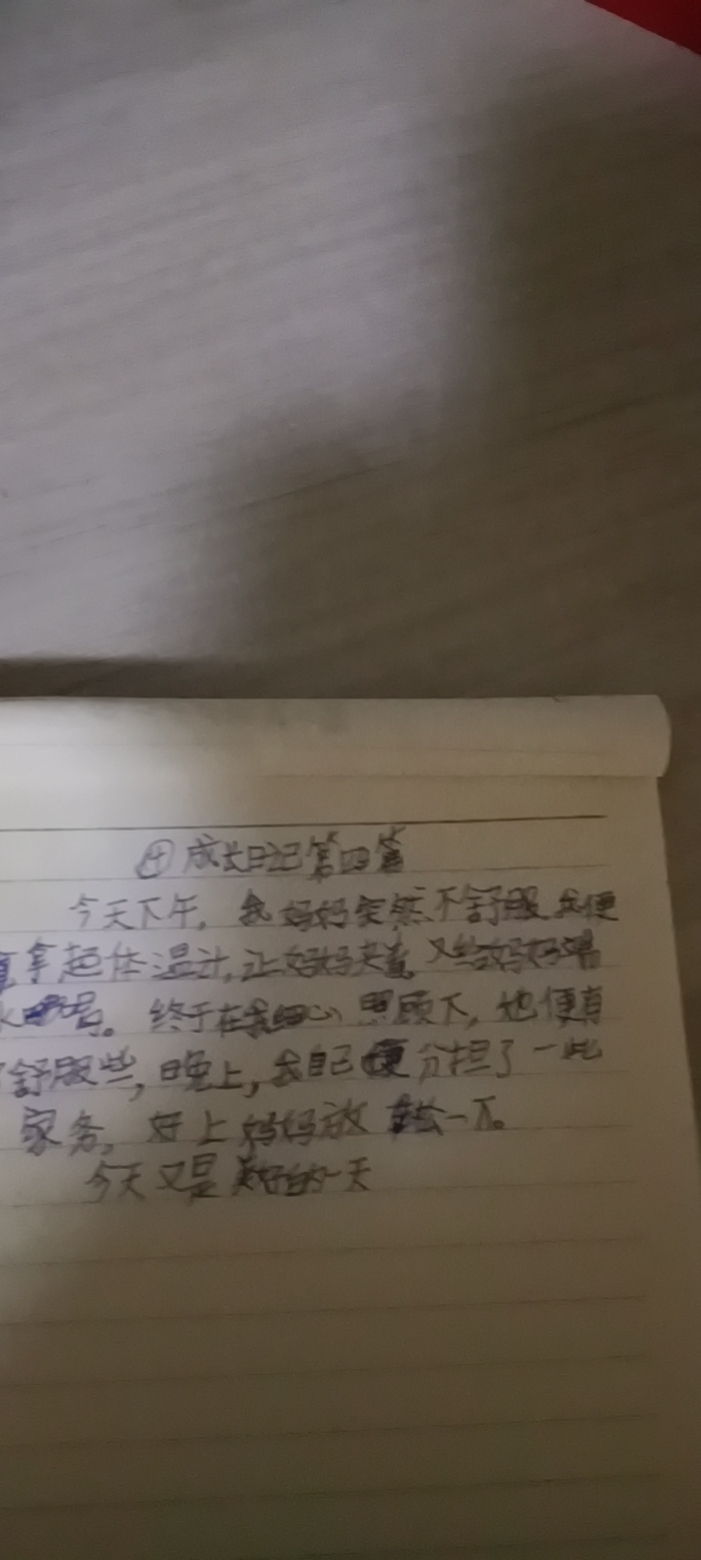 ④ 成长日记第四篇
今天下午，我妈妈突然不舒服，我便
拿起体温计，让妈妈夹着，又给妈妈喝
水。终于在我细心照顾下，她便有
舒服些，晚上，我自己便分担了一些
家务，好上妈妈放松一下。
今天又是美好的一天